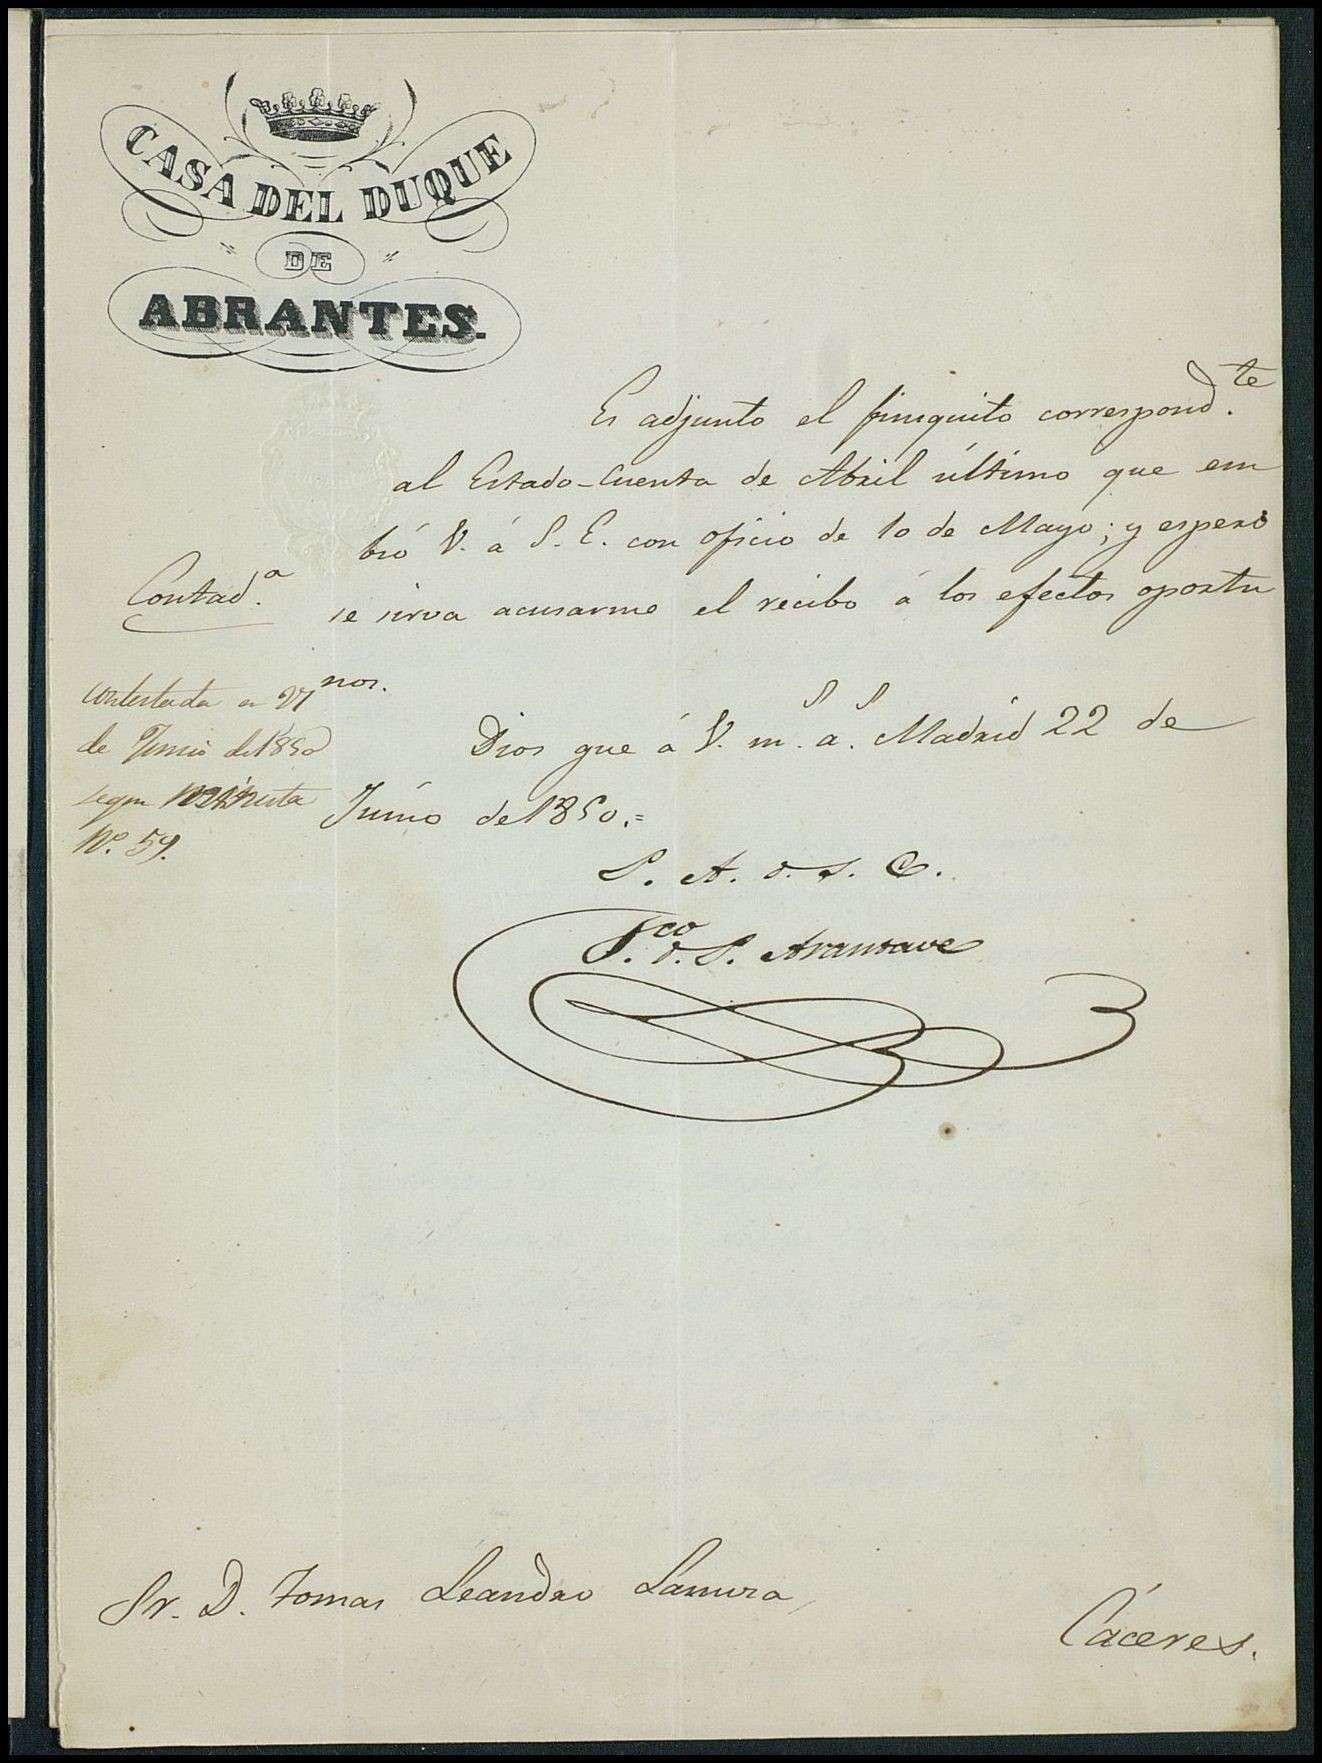 CASA DEL DUQUE
DE
ABRANTES.
Es adjunto el finiquito correspond.te
al Estado-Cuenta de Abril último que em
bió V. á S. E. con oficio de 10 de Mayo; y espero
Contad.a
se sirva acusarme el recibo á los efectos oportu
nos.
contestada en 27
de Junio de 1850
segun minuta
Nº. 59.
Dios gue á V. m.s a.s Madrid 22 de
Junio de 1850.=
P. A. d. S. C.
F.co d. P. Aransave
Sr. D. Tomas Leandro
Cáceres.